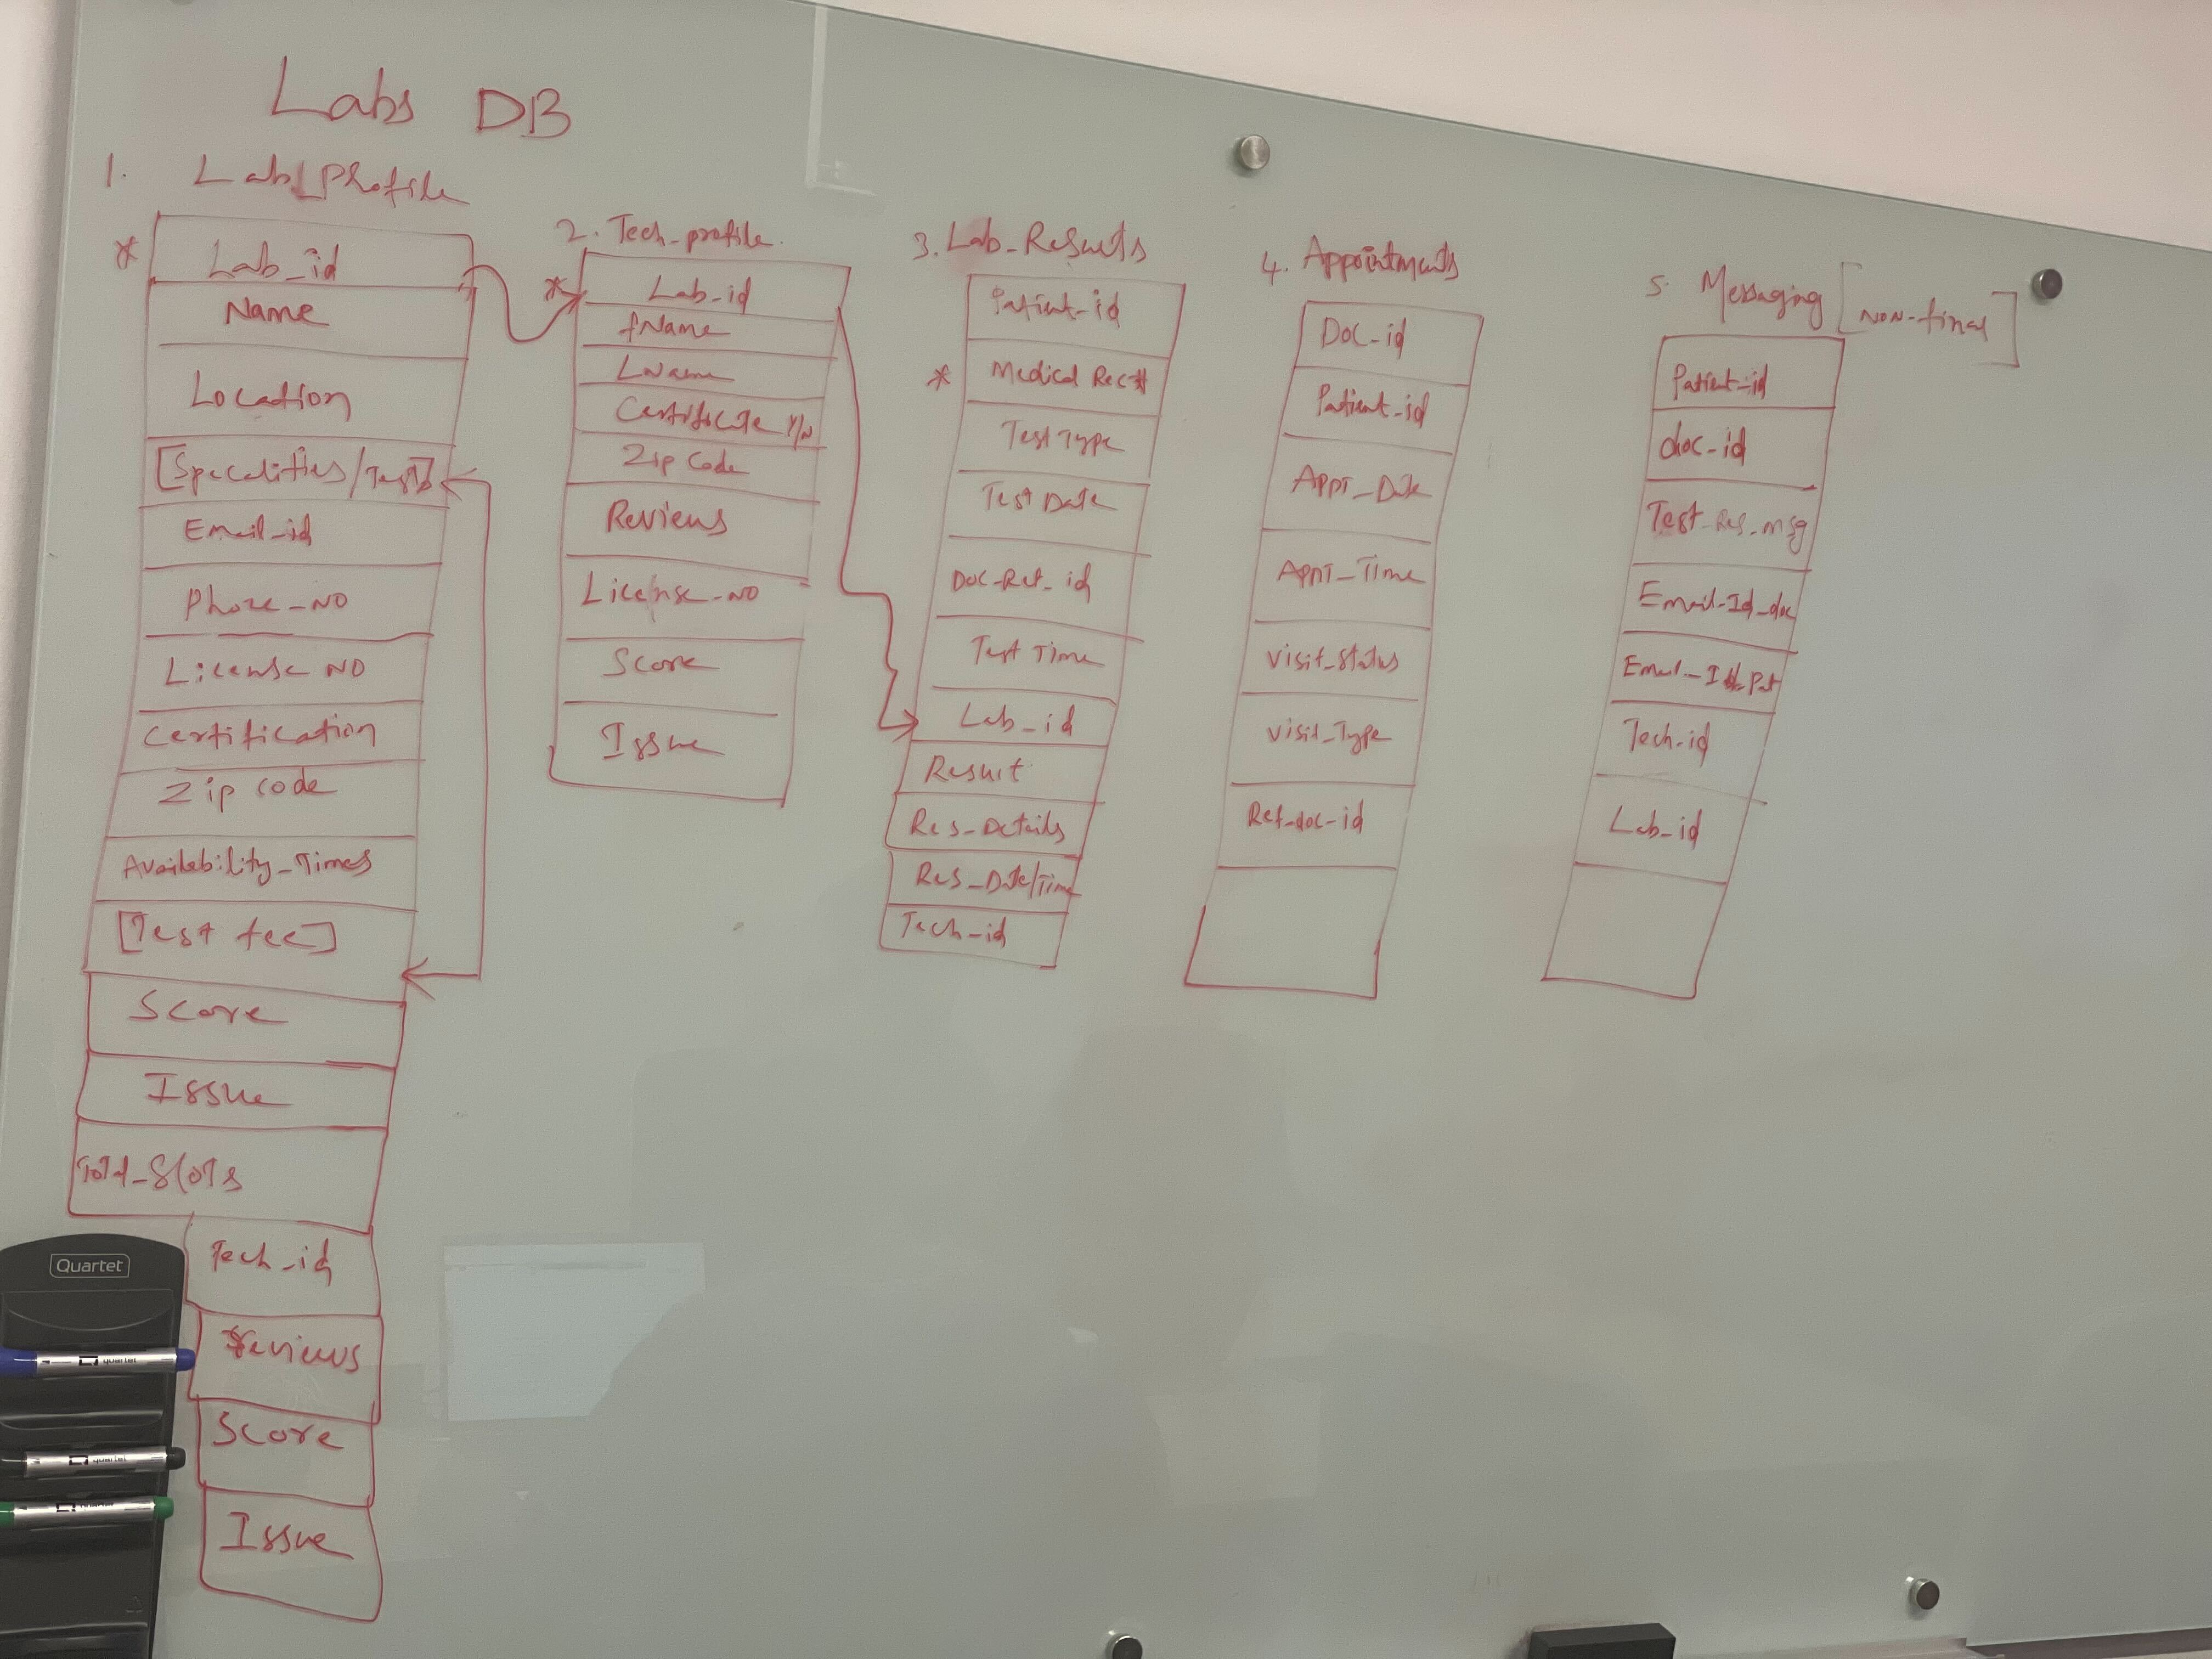 Labs DB
1. Lab_Profile
* Lab_id
Name
Location
[Specalities/Tests]
Email_id
Phone_NO
License NO
Certification
Zip code
Availability_Times
[Test fee]
Score
Issue
Total_Slots
Tech_id
Reviews
Score
Issue
2. Tech_profile
* Lab_id
fName
LName
Certificate Y/N
Zip Code
Reviews
License_NO
Score
Issue
3. Lab_Results
Patient_id
* Medical Rec#
Test Type
Test Date
Doc_Ref_id
Test Time
Lab_id
Result
Res_Details
Res_Date/Time
Tech_id
4. Appointments
Doc_id
Patient_id
Appt_Date
Appt_Time
Visit_Status
Visit_Type
Ref_doc_id
5. Messaging [NON-final]
Patient_id
doc_id
Test_Res_msg
Email_Id_doc
Email_Id_Pat
Tech_id
Lab_id
Quartet
quartet
quartet